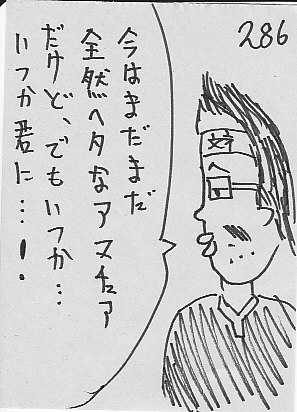 286
今はまだまだ
全然ヘタなアマチュア
だけど、でもいつか…
いつか君に…！